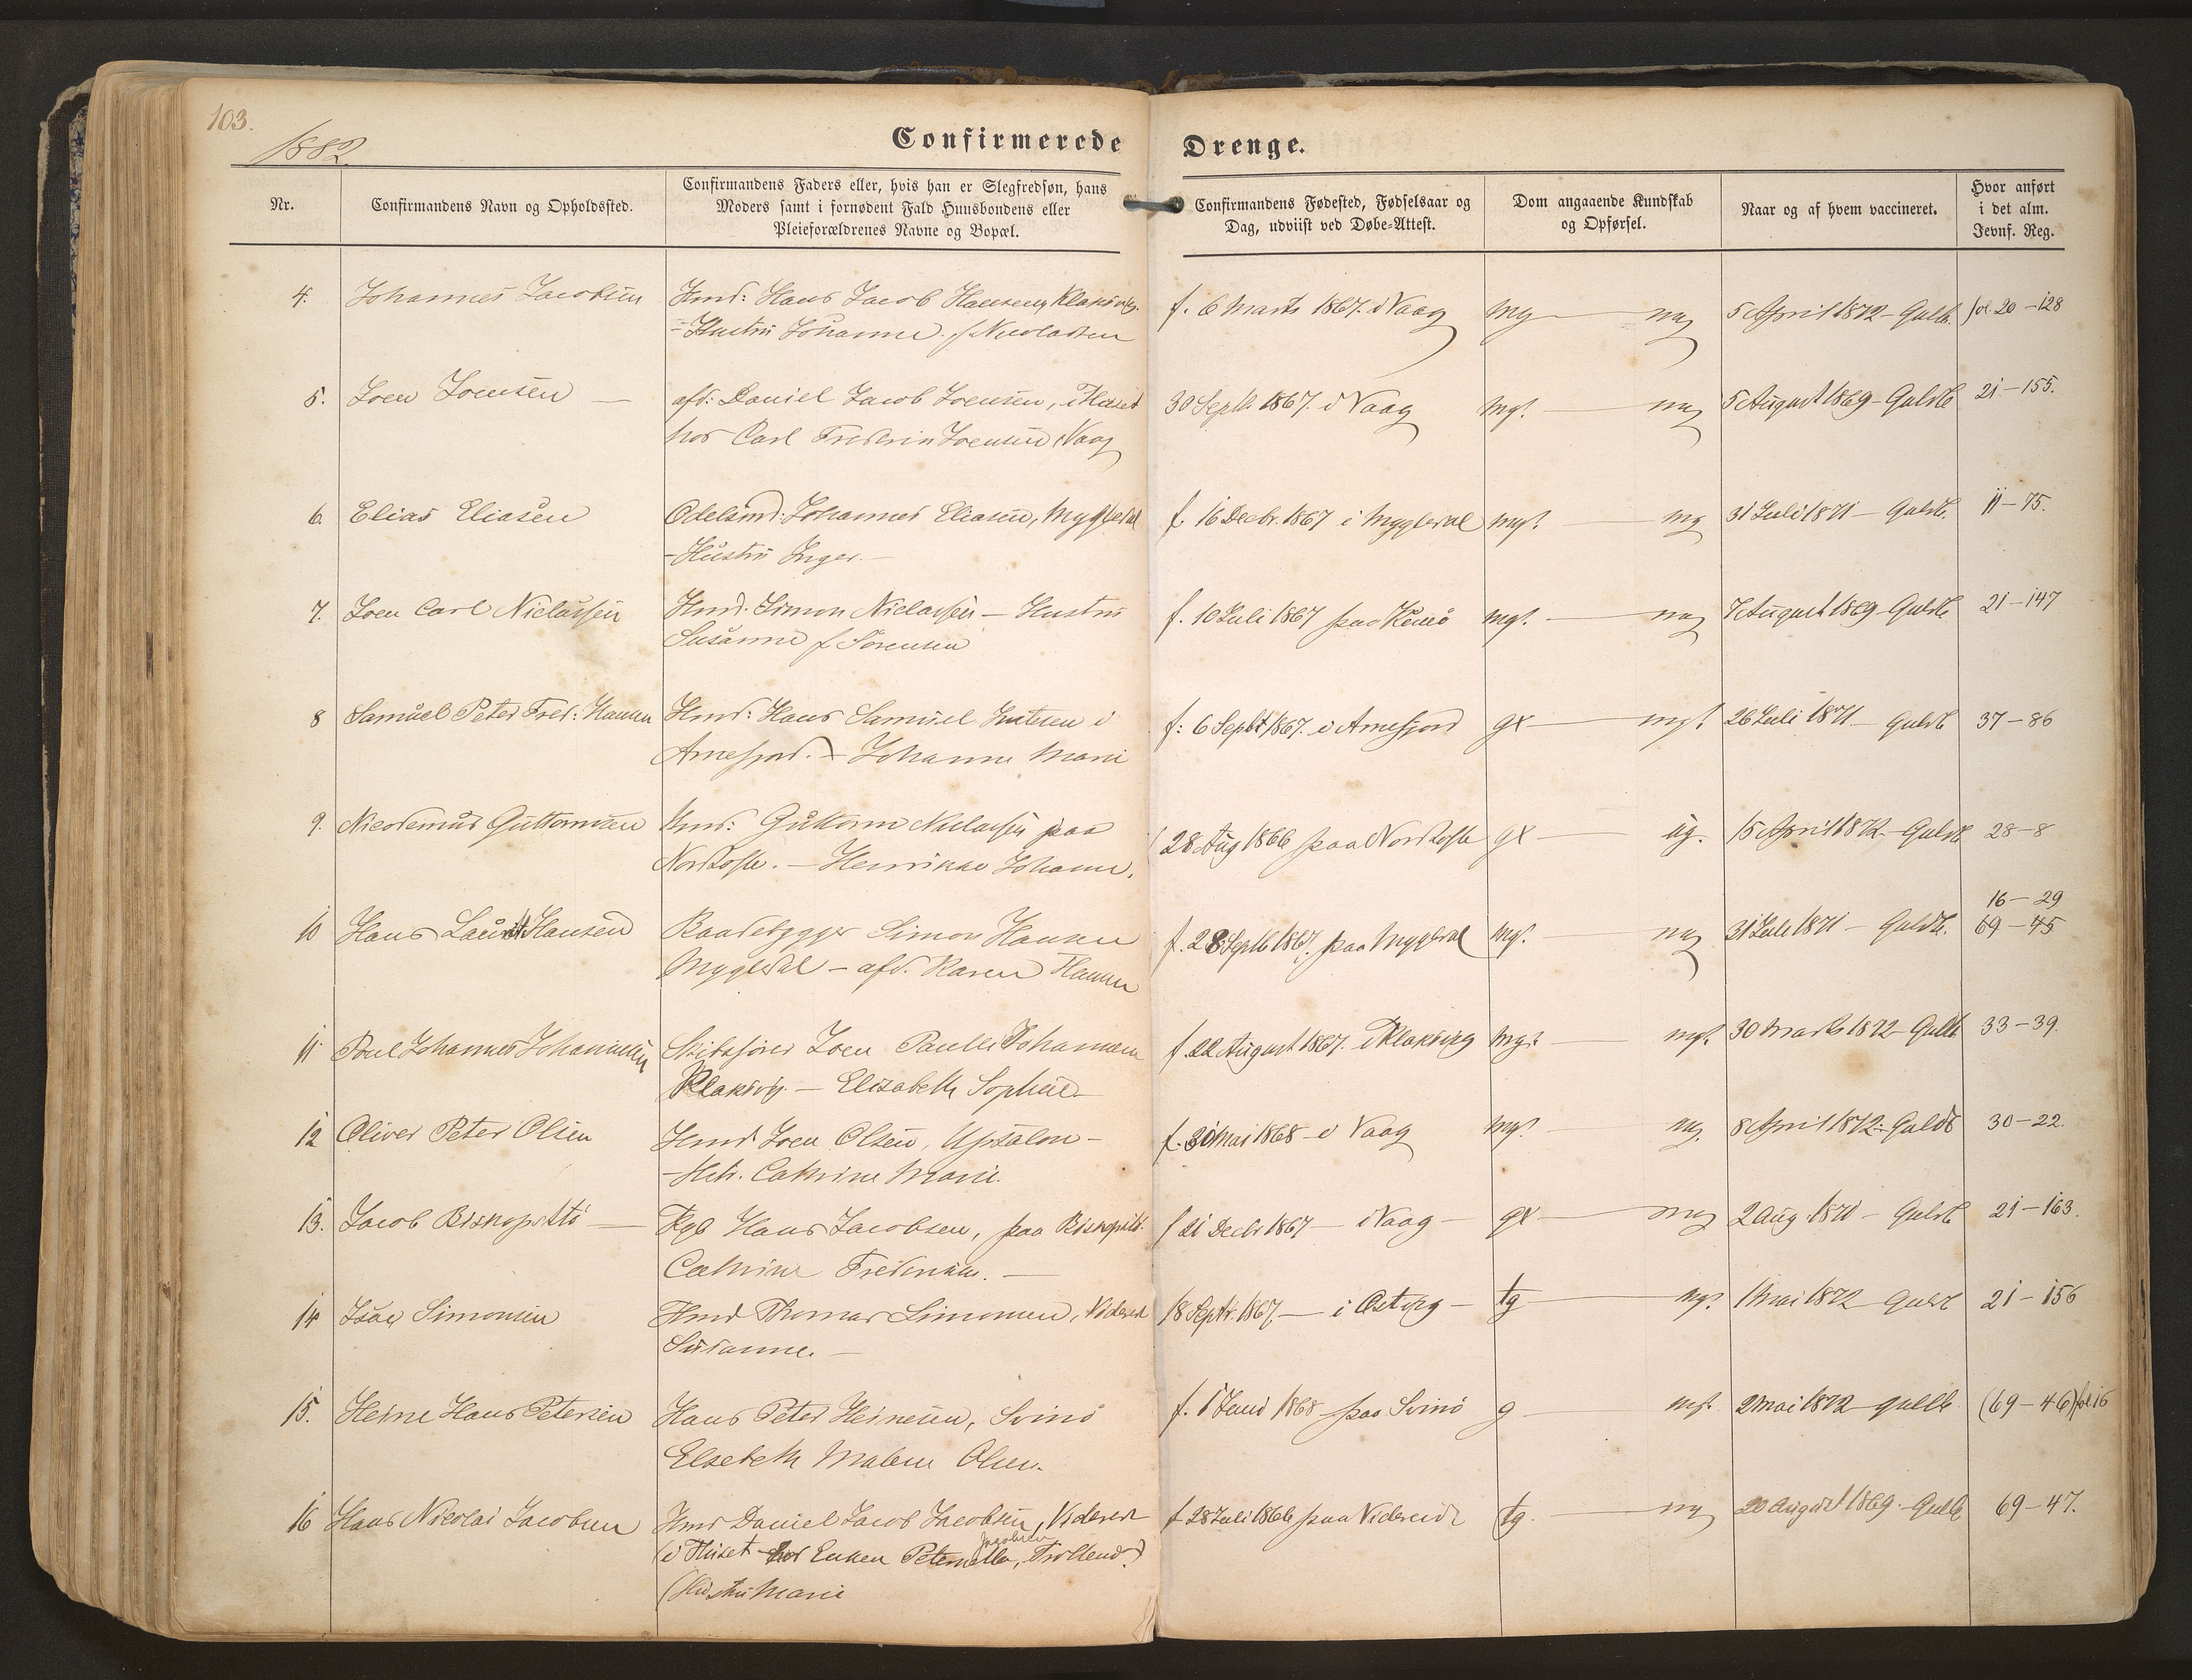 103.
1882.
Confirmerede Drenge.
Nr.
Confirmandens Navn og Opholdssted.
Confirmandens Faders eller, hvis han er Slegfredsøn, hans
Moders samt i fornødent Fald Huusbondens eller
Pleieforældrenes Navne og Bopæl.
Confirmandens Fødested, Fødselsaar og
Dag, udviist ved Døbe-Attest.
Dom angaaende Kundskab
og Opførsel.
Naar og af hvem vaccineret.
Hvor anført
i det alm.
Jevnf. Reg.
4. Johannes Jacobsen Hmd: Hans Jacob Hansen, Klaksvig. f. 6 Marts 1867. i Vaag mg — mg 5 April 1872 - Guldb. fol. 20 - 128
- Hustru Johanne f. Nicolassen
5. Joen Joensen — afd: Daniel Jacob Joensen, i Huset 30 Septb. 1867. i Vaag mg?. — mg 5 August 1869 - Guldb 21 - 155.
hos Carl Frederik Joensen i Vaag
6. Elias Eliasen Odelsmd: Johannes Eliasen, Mygledal f. 16 Decbr. 1867 i Mygledal mg?. — mg 31 Juli 1871 - Guldb. 11 - 75.
- Hustru Inger. —
7. Joen Carl Niclassen Hmd. Simon Niclassen — Hustru f. 10 Juli 1867 paa Kunø mg?. — mg 7 August 1869 - Guldb 21 - 147
Susanne f Sørensen
8 Samuel Peter Fred: Hansen Hmd: Hans Samuel i f: 6 Septbr 1867. i Arnefjord gx — mg? 26 Juli 1871 - Guldb 37 - 86
Arnefjord. - Johanne Marie
9. Nicodemus Guttormsen Hmd: Guttorm Niclassen paa 28 Aug 1866 paa Nordtofte gx — ug. 15 April 1872 - Guldb 28 - 8
Nordtofte. — Henrikke Johanne.
16 - 29
10 Hans Laurits Hansen Baadebygger Simon Hansen f. 28 Septb 1867. paa Mygledal mg?. — mg 31 Juli 1871 - Guldb. 69 - 45
Mygledal - afd. Karen Hansen
11 Poul Johannes Johannesen Skibsfører Joen Poul Johannesen f. 22 August 1867. i Klaksvig mg? — mg? 30 Marts 1872 - Guldb 33 - 39.
Klaksvig. — Elisabeth Sophie —
12 Oliver Peter Olsen Hmd Joen Olsen, Upsalon - f. Mai 1868 - i Vaag mg?. — mg. 8 April 1872 - Guldb 30 - 22.
- Hstr. Cathrine Marie.
13. Jacob Biskopstø — Kgb Hans Jacobsen, paa Bispstø f 21 Decbr 1867 — i Vaag — gx — mg 2 Aug 1871 - Guldb 21 - 163.
Cathrine Frederikke. —
14 Isac Simonsen Hmd Thomas Simonsen, Videreid 18 Septr. 1867, — i Østvig - tg — mg? 1 Mai 1872 Guldb 21 - 156
Susanne. —
15. Heine Hans Petersen Hans Peter Heinesen, Svinø f. 1 Juni 1868 paa Svinø g — mg? 2 Mai 1872 - Guldb (69 - 46) fol. 16
Elsebeth Malene Olsen.
16 Hans Nicolai Jacobsen Hmd Daniel Jacob Jacobsen, Videreid f 28 Juli 1866 paa Videreide tg. — mg 20 August 1869 - Guldb 69 - 47.
Jacobsen
(i Huset hos Enken Peternella, )
(Hustru Marie